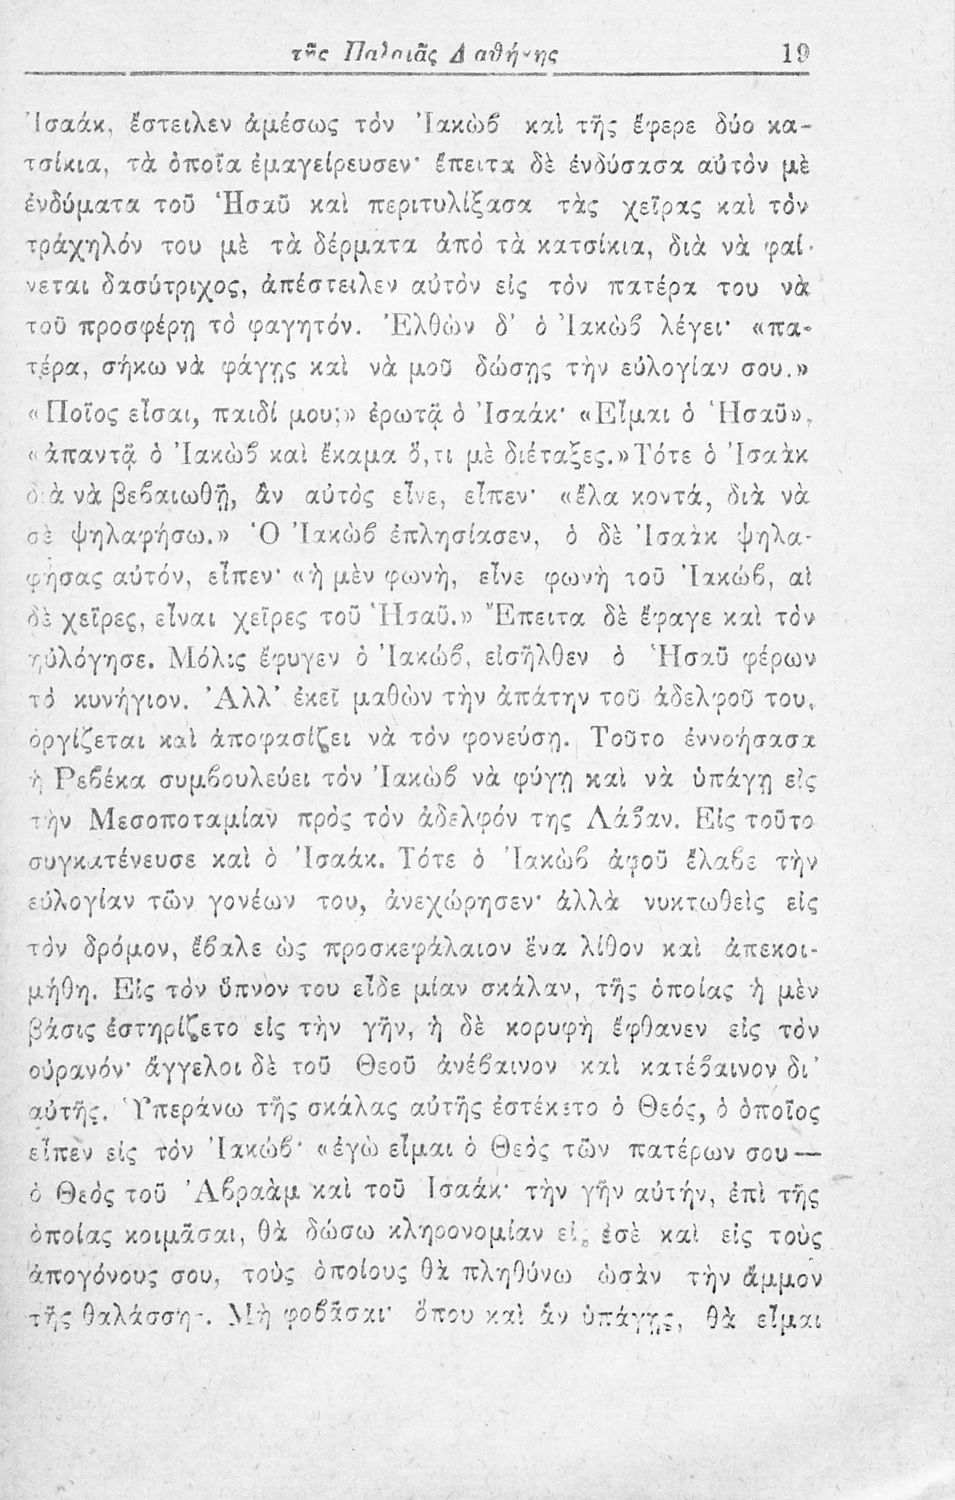 τῆς Παλαιᾶς Διαθήκης 19
Ἰσαάκ, ἔστειλεν ἀμέσως τὸν Ἰακὼβ καὶ τῆς ἔφερε δύο κα-
τσίκια, τὰ ὁποῖα ἐμαγείρευσεν· ἔπειτα δὲ ἐνδύσασα αὐτὸν μὲ
ἐνδύματα τοῦ Ἡσαῦ καὶ περιτυλίξασα τὰς χεῖρας καὶ τὸν
τράχηλόν του μὲ τὰ δέρματα ἀπὸ τὰ κατσίκια, διὰ νὰ φαί-
νεται δασύτριχος, ἀπέστειλεν αὐτὸν εἰς τὸν πατέρα του νὰ
τοῦ προσφέρῃ τὸ φαγητόν. Ἐλθὼν δ' ὁ Ἰακὼβ λέγει· «πα-
τέρα, σήκω νὰ φάγῃς καὶ νὰ μοῦ δώσῃς τὴν εὐλογίαν σου.»
«Ποῖος εἶσαι, παιδί μου;» ἐρωτᾷ ὁ Ἰσαάκ· «Εἶμαι ὁ Ἡσαῦ»,
«ἀπαντᾷ ὁ Ἰακὼβ καὶ ἔκαμα ὅ,τι μὲ διέταξες.» Τότε ὁ Ἰσαὰκ
διὰ νὰ βεβαιωθῇ, ἂν αὐτὸς εἶνε, εἶπεν· «ἔλα κοντά, διὰ νὰ
σὲ ψηλαφήσω.» Ὁ Ἰακὼβ ἐπλησίασεν, ὁ δὲ Ἰσαὰκ ψηλα-
φήσας αὐτόν, εἶπεν· «ἡ μὲν φωνή, εἶνε φωνὴ τοῦ Ἰακώβ, αἱ
δὲ χεῖρες, εἶναι χεῖρες τοῦ Ἡσαῦ.» Ἔπειτα δὲ ἔφαγε καὶ τὸν
ηὐλόγησε. Μόλις ἔφυγεν ὁ Ἰακώβ, εἰσῆλθεν ὁ Ἡσαῦ φέρων
τὸ κυνήγιον. Ἀλλ' ἐκεῖ μαθὼν τὴν ἀπάτην τοῦ ἀδελφοῦ του,
ὀργίζεται καὶ ἀποφασίζει νὰ τὸν φονεύσῃ. Τοῦτο ἐννοήσασα
ἡ Ρεβέκα συμβουλεύει τὸν Ἰακὼβ νὰ φύγῃ καὶ νὰ ὑπάγῃ εἰς
τὴν Μεσοποταμίαν πρὸς τὸν ἀδελφόν της Λάβαν. Εἰς τοῦτο
συγκατένευσε καὶ ὁ Ἰσαάκ. Τότε ὁ Ἰακὼβ ἀφοῦ ἔλαβε τὴν
εὐλογίαν τῶν γονέων του, ἀνεχώρησεν· ἀλλὰ νυκτωθεὶς εἰς
τὸν δρόμον, ἔβαλε ὡς προσκεφάλαιον ἕνα λίθον καὶ ἀπεκοι-
μήθη. Εἰς τὸν ὕπνον του εἶδε μίαν σκάλαν, τῆς ὁποίας ἡ μὲν
βάσις ἐστηρίζετο εἰς τὴν γῆν, ἡ δὲ κορυφὴ ἔφθανεν εἰς τὸν
οὐρανόν· ἄγγελοι δὲ τοῦ Θεοῦ ἀνέβαινον καὶ κατέβαινον δι'
αὐτῆς. Ὑπεράνω τῆς σκάλας αὐτῆς ἐστέκετο ὁ Θεός, ὁ ὁποῖος
εἶπεν εἰς τὸν Ἰακώβ· «ἐγὼ εἶμαι ὁ Θεὸς τῶν πατέρων σου—
ὁ Θεὸς τοῦ Ἀβραὰμ καὶ τοῦ Ἰσαάκ· τὴν γῆν αὐτήν, ἐπὶ τῆς
ὁποίας κοιμᾶσαι, θὰ δώσω κληρονομίαν εἰς ἐσὲ καὶ εἰς τοὺς
ἀπογόνους σου, τοὺς ὁποίους θὰ πληθύνω ὡσὰν τὴν ἄμμον
τῆς θαλάσσης. Μὴ φοβᾶσαι· ὅπου καὶ ἂν ὑπάγῃς, θὰ εἶμαι